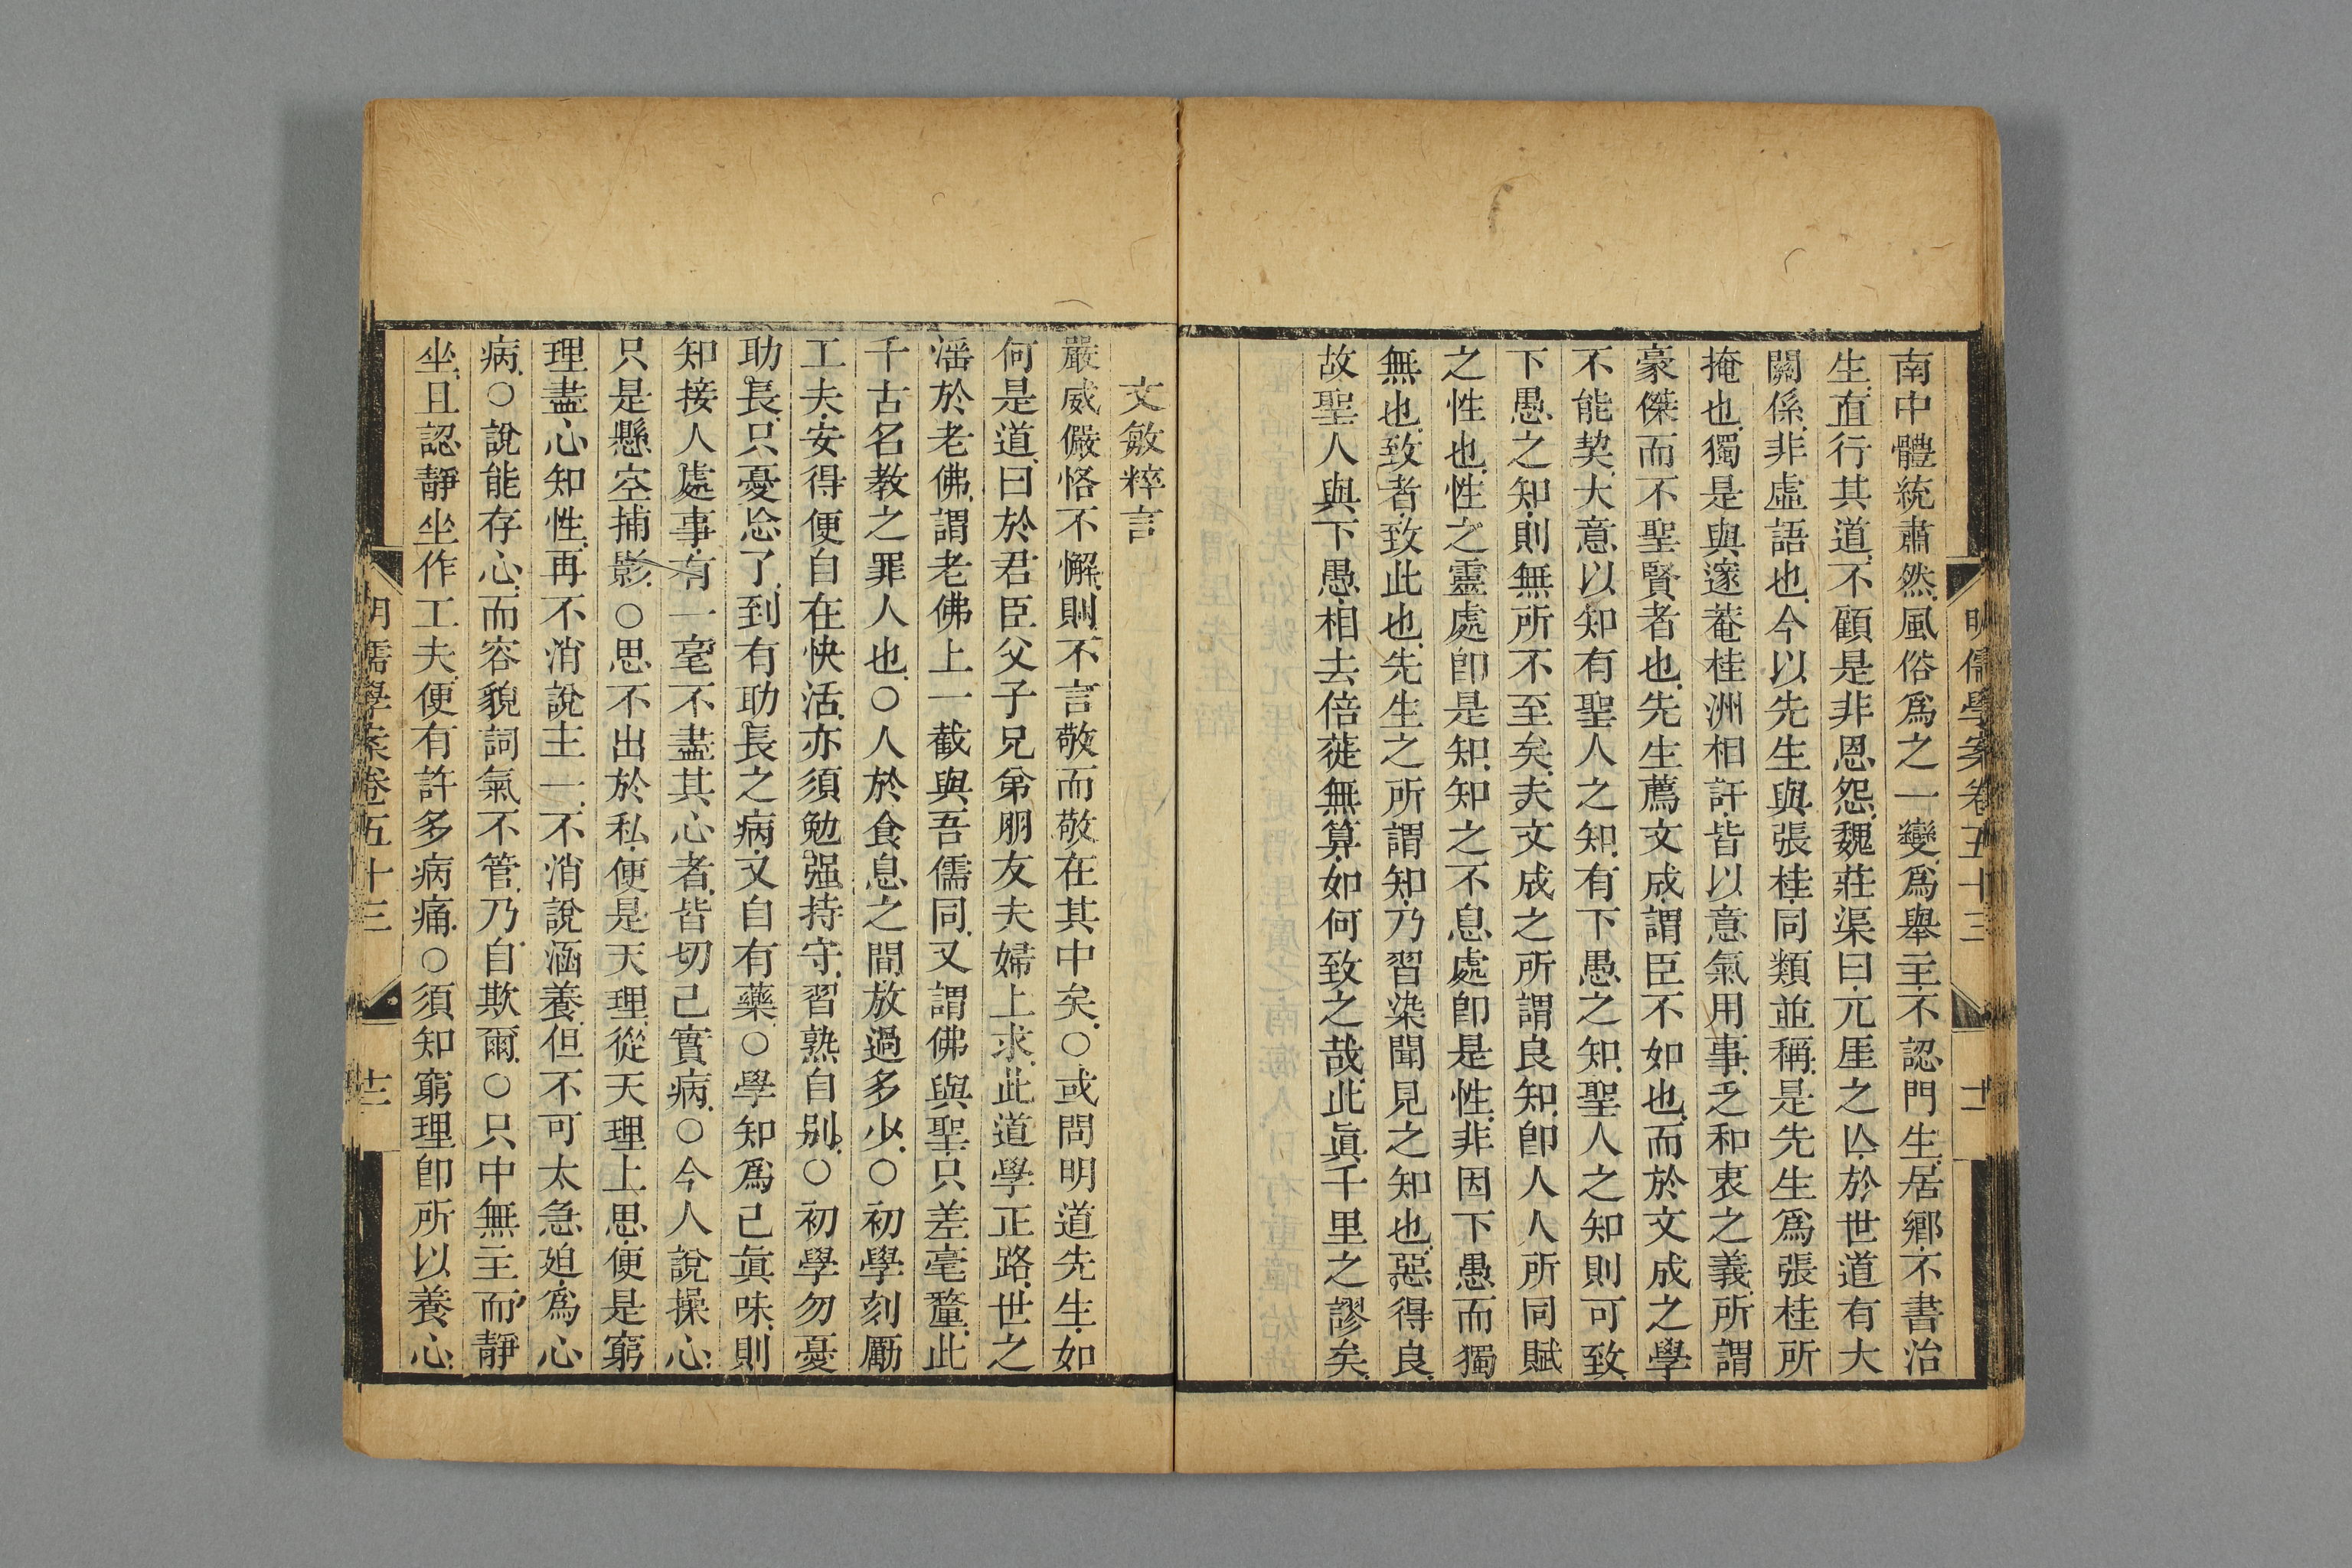 明儒學案卷五十三
十一
南中體統肅然風俗爲之一變爲舉主不認門生居鄉不書治
生直行其道不顧是非恩怨魏莊渠曰元厓之仏於世道有大
關係非虛語也今以先生與張桂同類並稱是先生爲張桂所
掩也獨是與邃菴桂洲相訐皆以意氣用事乏和衷之義所謂
豪傑而不聖賢者也先生薦文成謂臣不如也而於文成之學
不能契大意以知有聖人之知有下愚之知聖人之知則可致
下愚之知則無所不至矣夫文成之所謂良知卽人人所同賦
之性也性之靈處卽是知知之不息處卽是性非因下愚而獨
無也致者致此也先生之所謂知乃習染聞見之知也惡得良
故聖人與下愚相去倍蓰無算如何致之哉此眞千里之謬矣
文敏粹言
嚴威儼恪不懈則不言敬而敬在其中矣○或問明道先生如
何是道曰於君臣父子兄弟朋友夫婦上求此道學正路世之
滛於老佛謂老佛上一截與吾儒同又謂佛與聖只差毫釐此
千古名教之罪人也○人於食息之間放過多少○初學刻勵
工夫安得便自在快活亦須勉强持守習熟自别○初學勿憂
助長只憂忘了到有助長之病又自有藥○學知爲己眞味則
知接人處事有一毫不盡其心者皆切己實病○今人說操心
只是懸空捕影○思不出於私便是天理從天理上思便是窮
理盡心知性再不消說主一不消說涵養但不可太急廹爲心
病○說能存心而容貌詞氣不管乃自欺爾○只中無主而靜
坐且認靜坐作工夫便有許多病痛○須知窮理卽所以養心
明儒學案卷五十三
十二